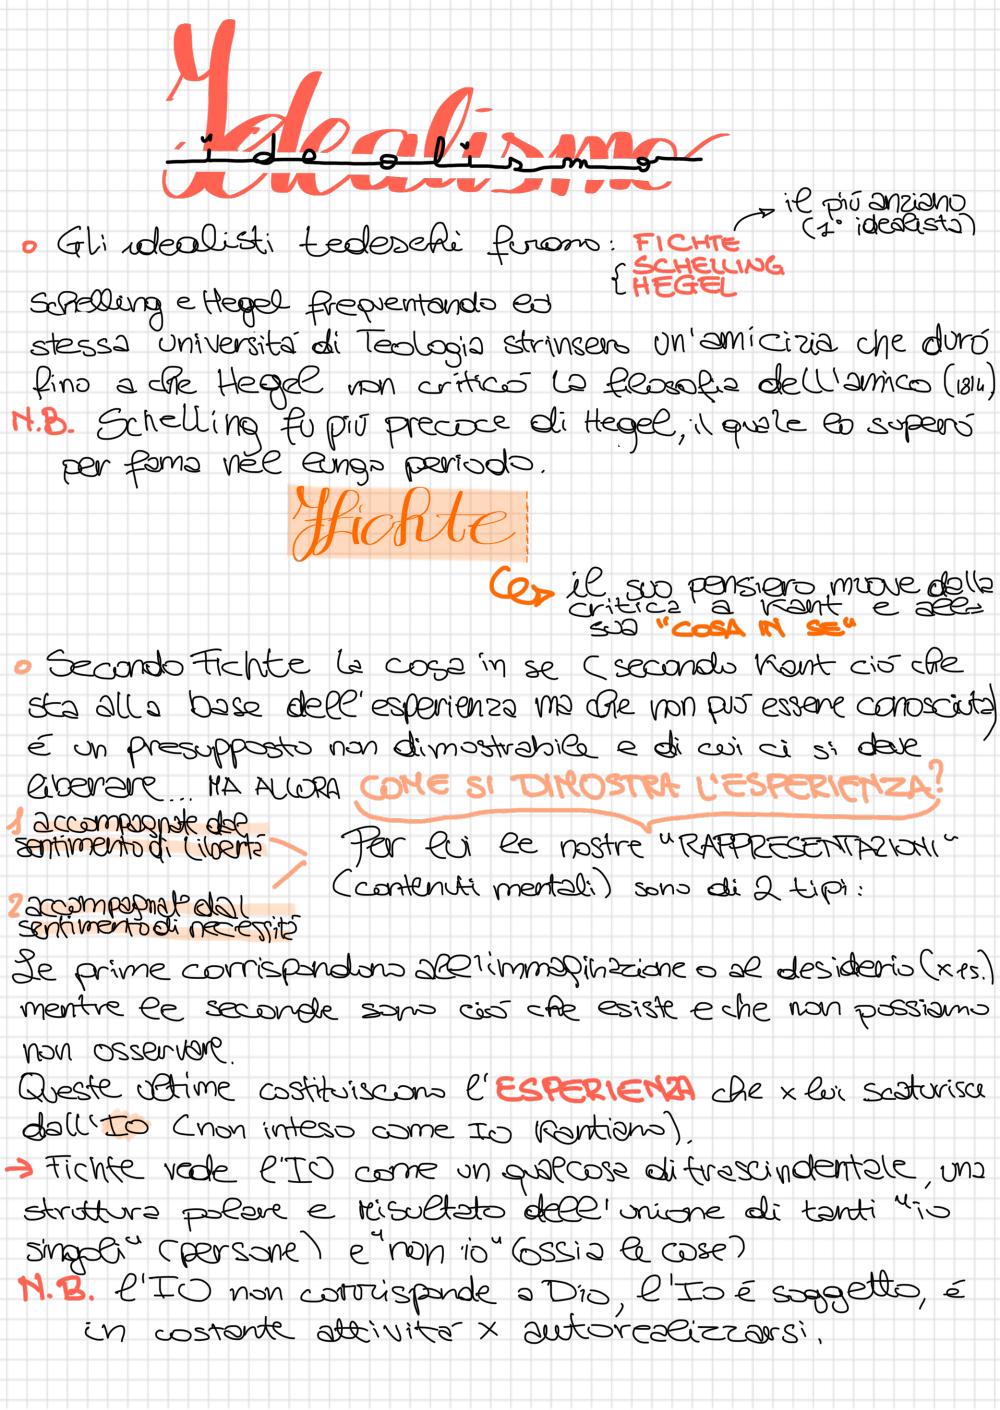 Idealismo
idealismo
il più anziano
(1° idealista)
• Gli idealisti tedeschi furono: FICHTE
SCHELLING
HEGEL
Schelling e Hegel frequentando la
stessa università di Teologia strinsero un'amicizia che durò
fino a che Hegel non criticò la filosofia dell'amico (1814)
N.B. Schelling fu più precoce di Hegel, il quale lo superò
per fama nel lungo periodo.
Fichte
il suo pensiero muove dalla
critica a Kant e alla
sua "COSA IN SE"
• Secondo Fichte la cosa in se (secondo Kant ciò che
sta alla base dell'esperienza ma che non può essere conosciuta)
é un presupposto non dimostrabile e di cui ci si deve
liberare... MA ALLORA COME SI DIMOSTRA L'ESPERIENZA?
1 accompagnate dal
sentimento di libertà
Per lui le nostre "RAPPRESENTAZIONI"
(contenuti mentali) sono di 2 tipi:
2 accompagnate dal
sentimento di necessità
Le prime corrispondono all'immaginazione o al desiderio (x es.)
mentre le seconde sono ciò che esiste e che non possiamo
non osservare.
Queste ultime costituiscono l'ESPERIENZA che x lui scaturisce
dall'IO (non inteso come Io Kantiano).
→ Fichte vede l'IO come un qualcosa di trascindentale, una
struttura polare e risultato dell'unione di tanti "io
singoli" (persone) e "non io" (ossia le cose)
N.B. l'IO non corrisponde a Dio, l'Io é soggetto, é
in costante attività x autorealizzarsi.